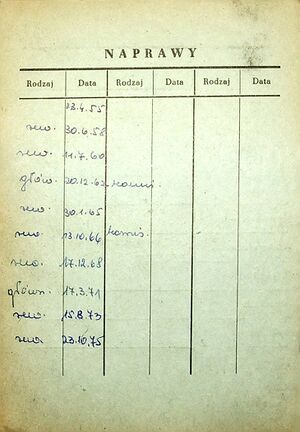 NAPRAWY
Rodzaj Data Rodzaj Data Rodzaj Data
23.4.55
rew. 30.6.58
rew. 11.7.60
główn. 20.12.62
rew. 30.1.65
rew. 13.10.66
rew. 17.12.68
główn. 17.3.71
rew. 15.8.73
rew. 23.10.75